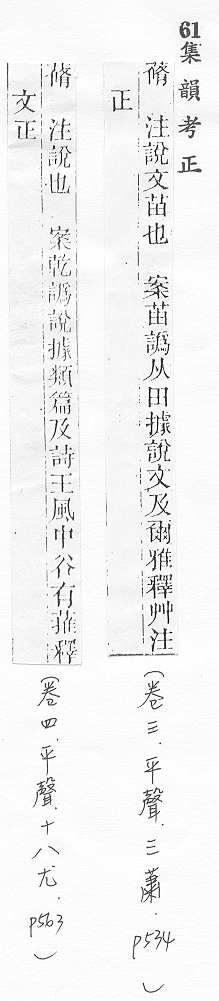 61集韻考正
脩 注說文苗也 案苗譌从田據說文及爾雅釋艸注
正
（卷三．平聲．三蕭．p534）
脩 注說也 案乾譌說據類篇及詩王風中谷有蓷釋
文正
（卷四．平聲．十八尤．p563）